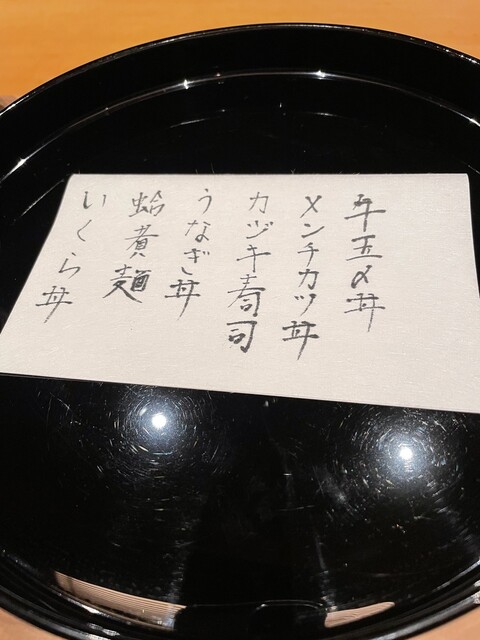 牛玉〆丼
メンチカツ丼
カヅキ寿司
うなぎ丼
蛤煮麺
いくら丼